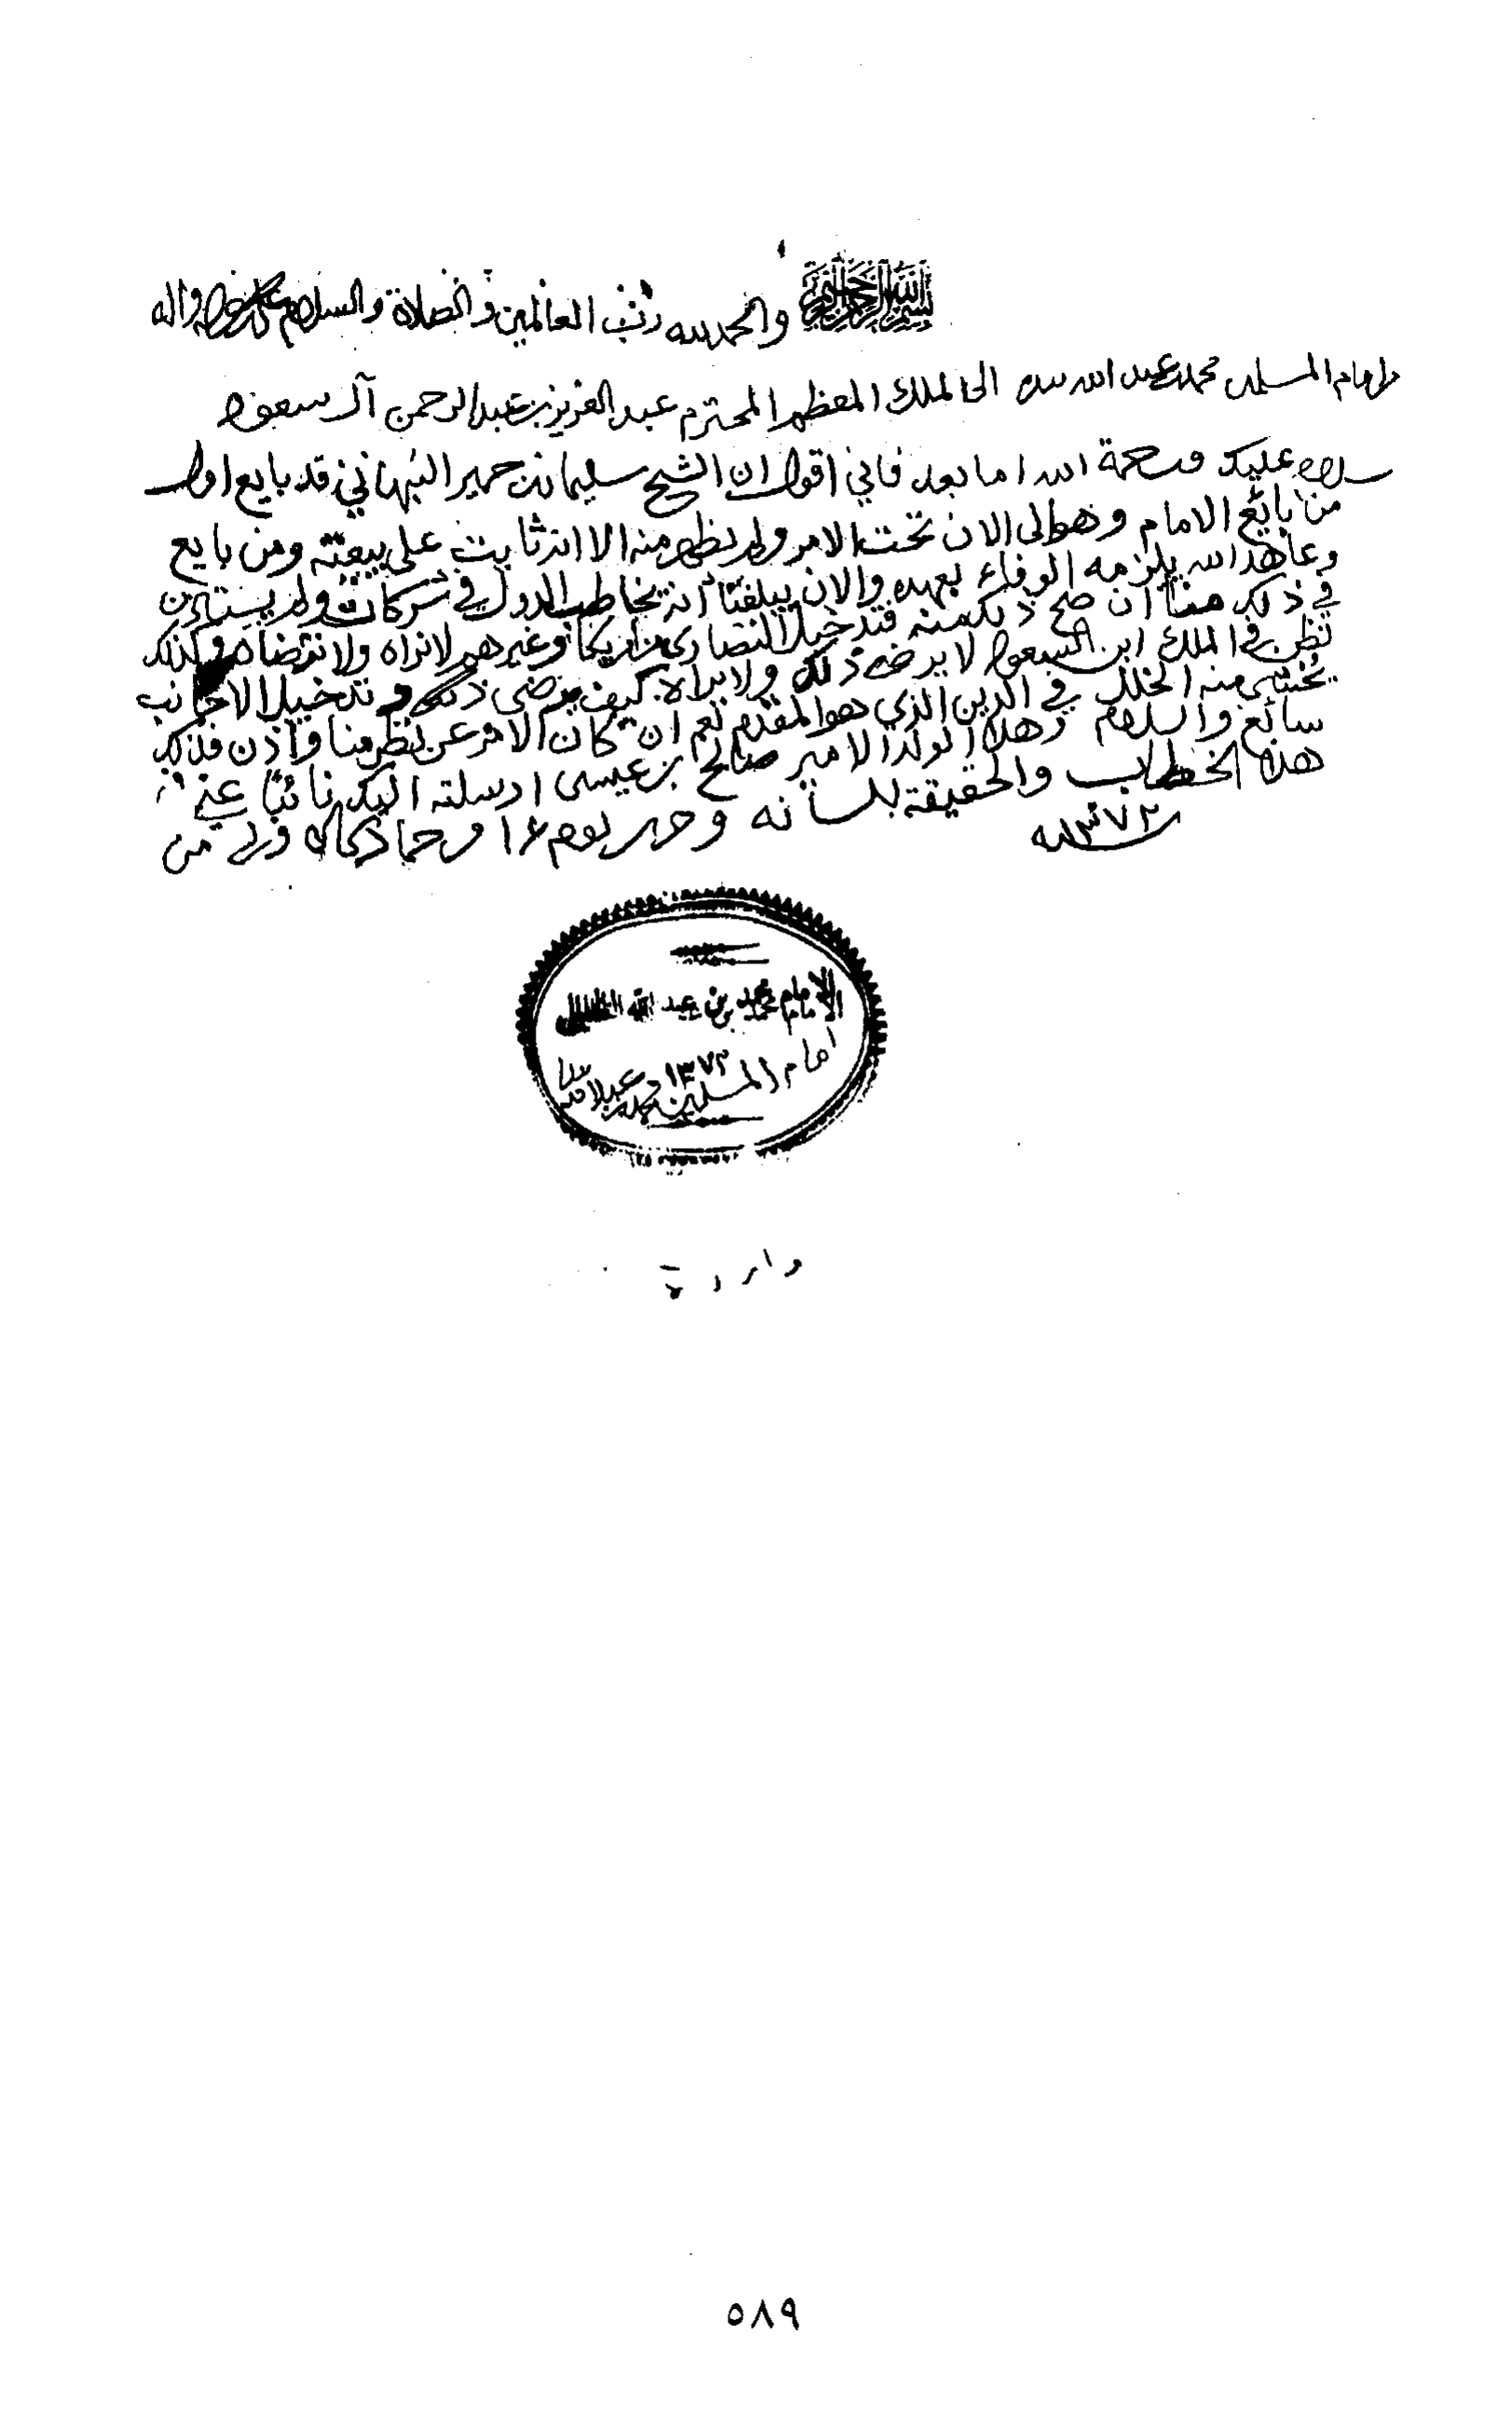 بسم الله الرحمن الرحيم والحمد لله رب العالمين والصلاة والسلام على رسوله واله
من امام المسلمين محمد بن عبد الله بيده الى الملك المعظم المحترم عبد العزيز بن عبد الرحمن آل سعود
سلام عليك ورحمة الله اما بعد فاني اقول ان الشيخ سليمان بن حمير النبهاني قد بايع اول
من بايع الامام وهو الى الان تحت الامر ولم يظهر منه الا انه ثابت على بيعته ومن بايع
وعاهد الله يلزمه الوفاء بعهده والان يبلغنا انه يخاطب الدول في شركات ولم يستاذن
في ذلك منا ان صح ذلك منه فتدخيل النصارى من امريكا وغيرهم لا نراه ولا نرضاه وكذلك
نظن في الملك ابن السعود لا يرضى ذلك ولا يراه كيف يرضى ذلك وتدخيل الاجانب
يختشى منه الخلل في الدين الذي هو المقدم نعم ان كان الامر عن نظر منا واذن فذلك
سائغ والسلام وهذا الولد الامير صالح بن عيسى ارسلته اليك نائبا عني في
هذا الخطاب والحقيقة بلسانه وحرر يوم ١٤ من جمادى الاولى من
سنة ١٣٧٢
الامام محمد بن عبد الله الخليلي
١٣٧٢
امام المسلمين محمد بن عبد الله
واردة
٥٨٩